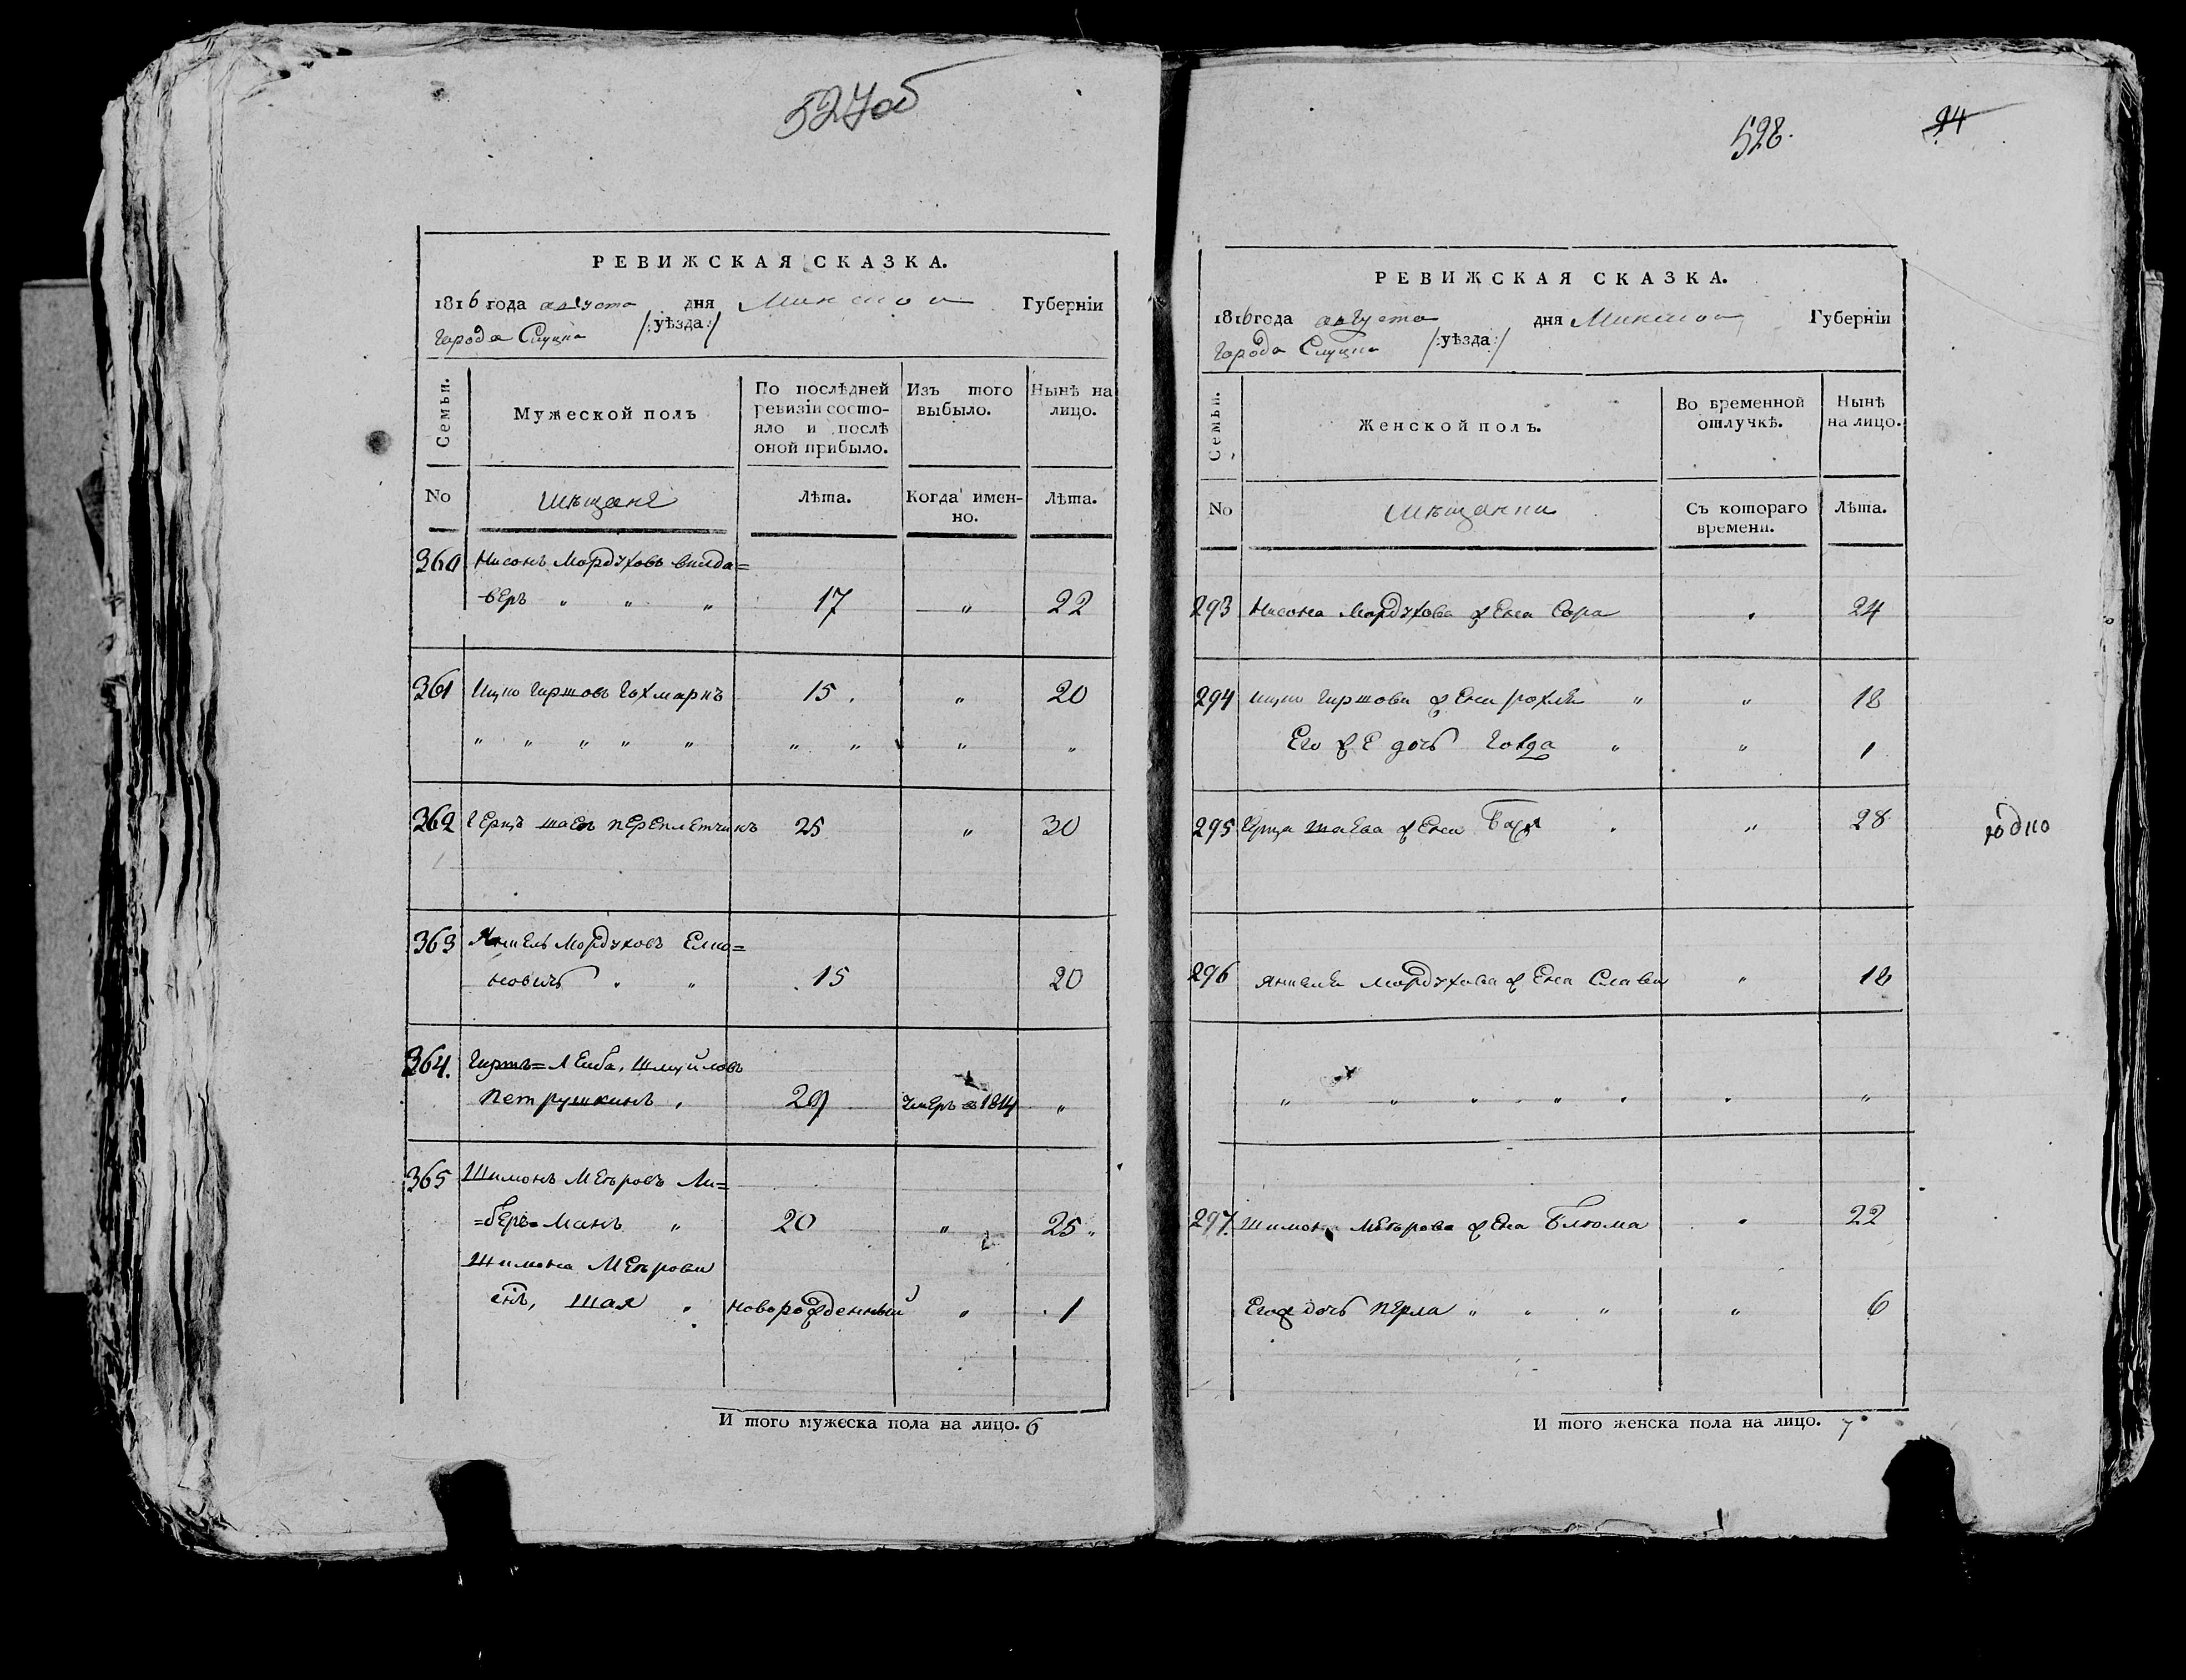 527об
РЕВИЖСКАЯ СКАЗКА.
1816 года августа дня Минской Губерніи
города Слуцка /:уѣзда:/
Семьи.
Мужеской полъ
По послѣдней ревизіи состо-
яло и послѣ оной прибыло.
Изъ того выбыло.
Нынѣ на лицо.
No
мѣщане
Лѣта.
Когда имен-
но.
Лѣта.
360 Нисонъ Мордуховъ Вилда=
веръ " " " 17 " 22
361 Ицко Гиршовъ Гохмаркъ 15. " 20
" " " " " " " " "
362 Герцъ Шаевъ Переплетчикъ 25 " 30
363 Яншель Мордуховъ Елио=
новичъ " " 15 20
364. Гиршъ=Лейба, Шмуйловъ
Петрушкинъ, 29 умеръ въ 1814 "
365 Шимонъ Меѣровъ Ли=
=беръ=манъ " 20 " 25 "
Шимона Меѣрова
снъ, Шая " новорожденный " 1
И того мужеска пола на лицо. 6
528.
94
РЕВИЖСКАЯ СКАЗКА.
1816 года августа дня Минской Губерніи
города Слуцка /:уѣзда:/
Семьи.
Женской полъ.
Во временной отлучкѣ.
Нынѣ на лицо.
No
мѣщанки
Съ котораго времени.
Лѣта.
293 Нисона Мордухова жена Сора " 24
294 Ицки Гиршова жена Рохля " " 18
Его ж Е дочь Голда " " 1
295 Герца Шаева жена " " 28
296 Яншеля Мордухова жена Слава " 18
" " " " " " "
297. Шимона Меѣрова жена Блюма " 22
Егож дочь Перла " " " " 6
И того женска пола на лицо. 7